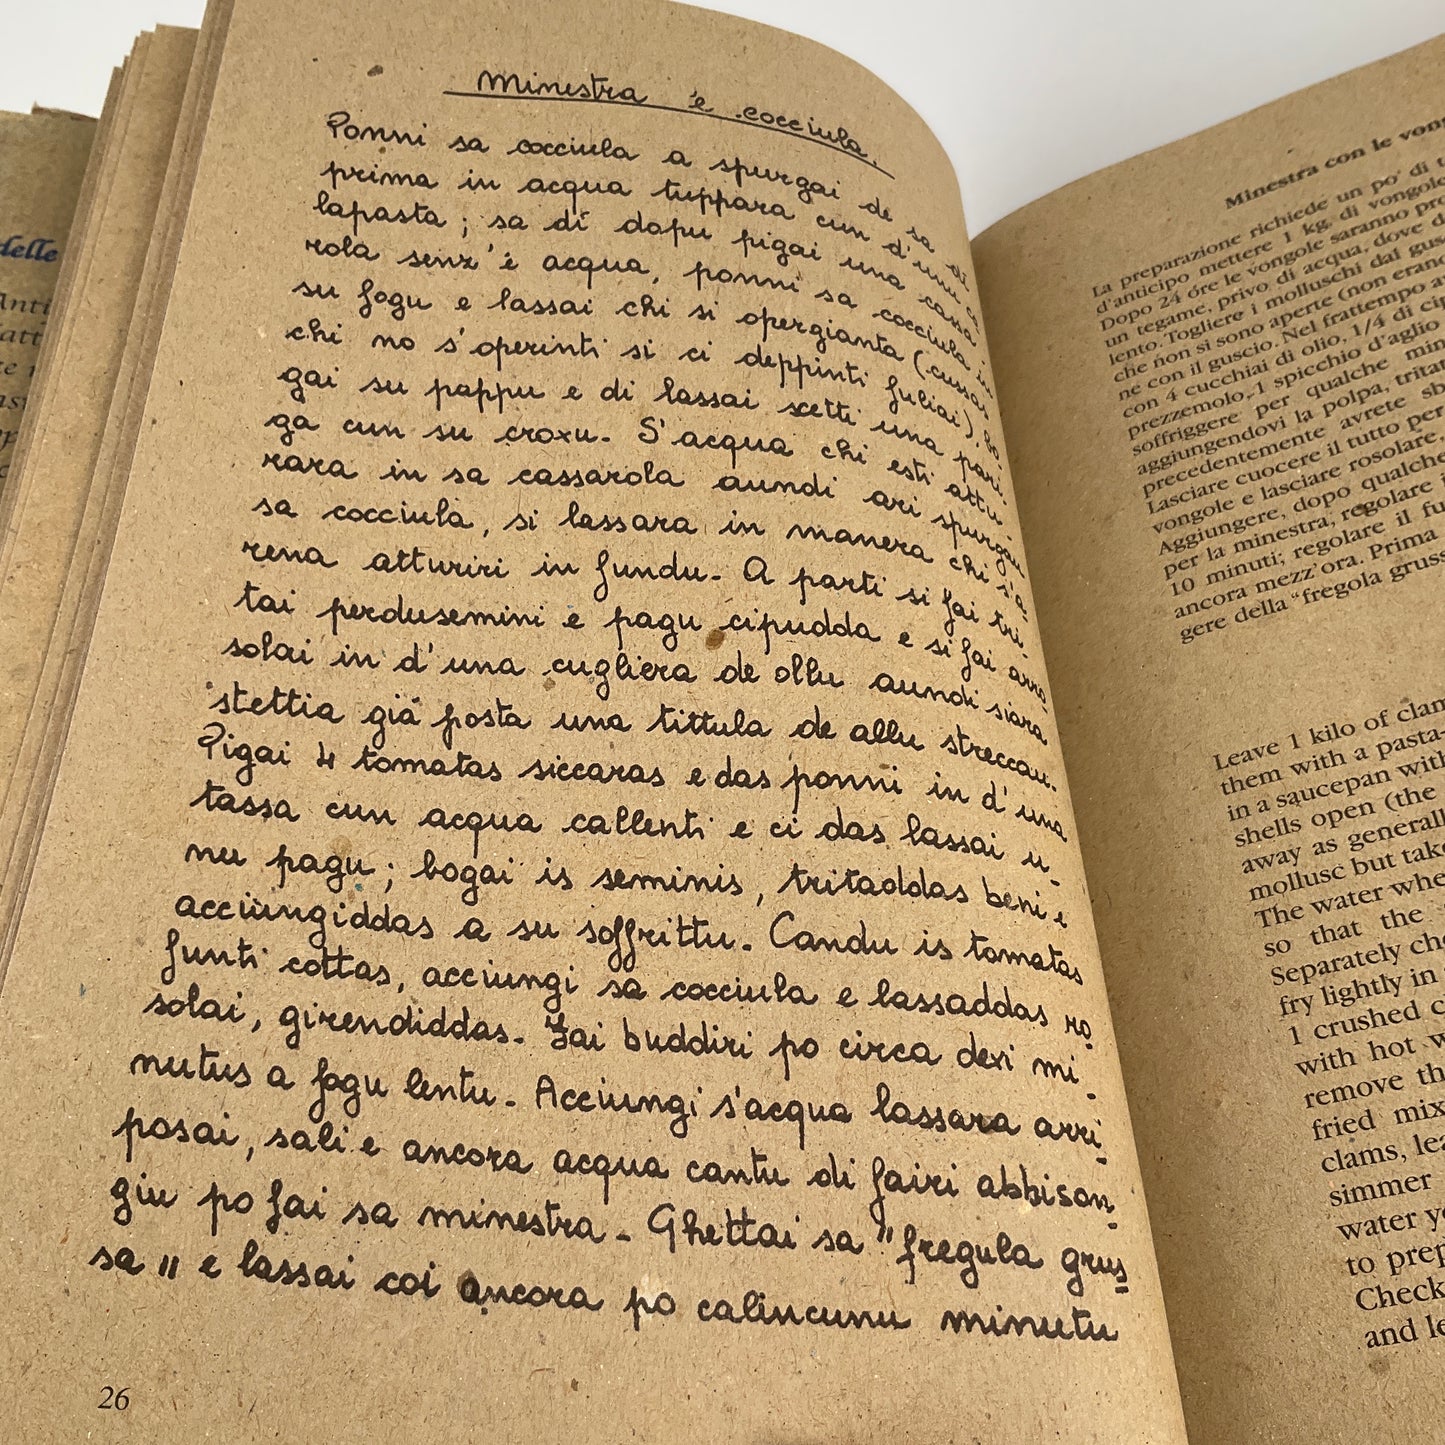 Minestra 'e cocciula.
Ponni sa cocciula a spurgai de sa
prima in acqua tuppara cun d'unu
lapasta; sa dí dapu pigai una cassa
rola senz'è acqua, ponni sa cocciula in
su fogu e lassai chi si opergianta (cussas
chi no s'operinti si ci deppinti fuliai). Bo.
gai su pappu e di lassai scetti una pari.
ga cun su croxu. S'acqua chi esti attu.
rara in sa cassarola aundi ari spurgau
sa cocciula, si lassara in manera chi s'a.
rena atturiri in fundu. A parti si fai tri.
tai perdusemini e pagu cipudda e si fai arro
solai in d'una cugliera de ollu aundi siara
stettia giá posta una tittula de allu streccau.
Pigai 4 tomatas siccaras e das ponni in d'una
tassa cun acqua callenti e ci das lassai u.
nu pagu; bogai is seminis, tritaddas beni e
acciungiddas a su soffrittu. Candu is tomatas
funti cottas, acciungi sa cocciula e lassaddas ro.
solai, girendiddas. Fai buddiri po circa dexi mi.
nutus a fogu lentu. Acciungi s'acqua lassara arri.
posai, sali e ancora acqua cantu di fairi abbison.
giu po fai sa minestra. Ghettai sa "fregula grus
sa" e lassai coi ancora po calincunu minutu
26
delle
Minestra con le
La preparazione richiede un po' di
d'anticipo mettere 1 kg. di vongole
Dopo 24 óre le vongole saranno
un tegame, privo di acqua, dove
lento. Togliere i molluschi dal
che non si sono aperte (non
ne con il guscio. Nel frattempo
con 4 cucchiai di olio, 1/4 di
prezzemolo, 1 spicchio d'aglio
soffriggere per qualche
aggiungendovi la polpa,
precedentemente avrete
Lasciare cuocere il tutto per
vongole e lasciare rosolare,
Aggiungere, dopo qualche
per la minestra, regolare
10 minuti; regolare il
ancora mezz'ora. Prima
gere della "fregola
Leave 1 kilo of
them with a
in a saucepan
shells open (the
away as
mollusc but
The water
so that the
Separately
fry lightly in
1 crushed
with hot
remove
fried
clams,
simmer
water
to
Check
and